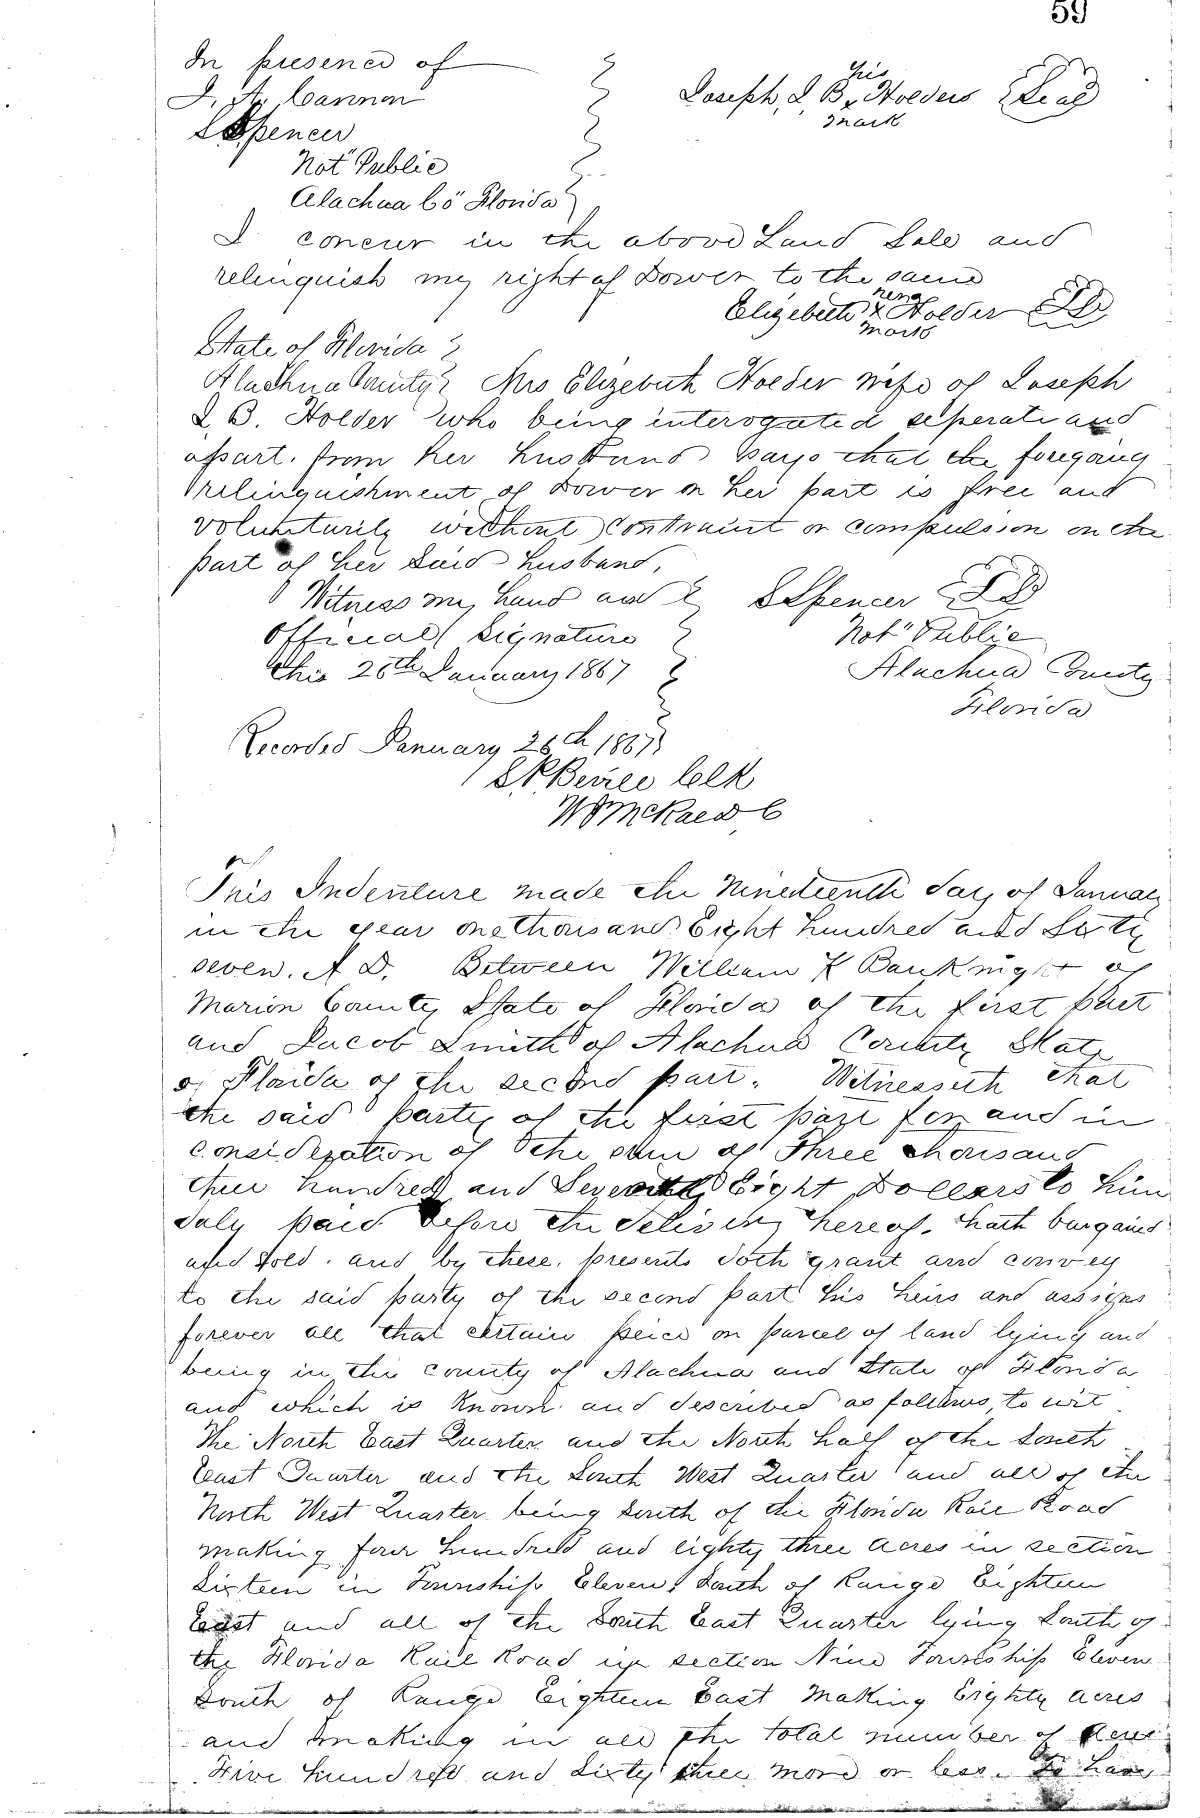 59
In presence of
J. A. Cannon
S Spencer
Not" Public
Alachua Co" Florida
his
Joseph, L B x Holder Seal
mark
I concur in the above Land Sale and
relinquish my right of Dower to the same
her
Elizebeth x Holder LS
mark
State of Florida
Alachua County Mrs Elizebeth Holder wife of Joseph
L B. Holder who being interogated seperate and
apart. from her husband says that the foregoing
relinquishment of Dower on her part is free and
voluntarily without contraint or compulsion on the
part of her said husband,
Witness my hand and
Official Signature
this 26th January 1867
S Spencer LS
Not" Public
Alachua County
Florida
Recorded January 26th 1867
S. P. Beville Clk
W J McRae D C
This Indenture made the Nineteenth day of January
in the year one thousand Eight hundred and Sixty
seven. A D. Between William K Bauknight of
Marion County State of Florida of the first part
and Jacob Smith of Alachua County State
of Flaida of the second part. Witnesseth that
the said party of the first part for and in
consideration of the sum of Three thousand
three hundred and Seventy Eight Dollars to him
duly paid before the delivery hereof. hath bargained
and sold. and by these. presents doth grant and convey
to the said party of the second part his heirs and assigns
forever all that certain peice or parcel of land lying and
being in the county of Alachua and State of Florida
and which is known and described as follows, to wit
The North East Quarter and the North half of the South
East Quarter and the South West Quarter and all of the
North West Quarter being South of the Florida Rail Road
making four hundred and eighty three acres in section
Sixteen in Township Eleven South of Range Eighteen
East and all of the South East Quarter lying South of
the Florida Rail Road in section Nine Township Eleven
South of Range Eighteen East Making Eighty acres
and making in all the total number of acres
Five hundred and Sixty three more or less. To have